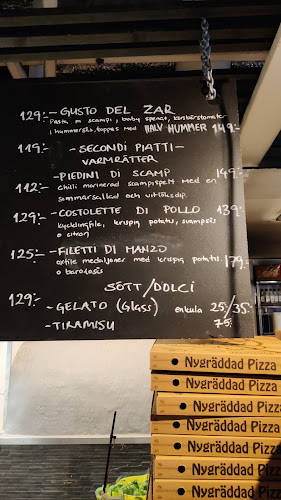 129:- -GUSTO DEL ZAR
Pasta m scampi, baby spenat, körsbärstomater
i hummersås, toppas med HALV HUMMER 149:-
119:- -SECONDI PIATTI-
VARMRÄTTER
-PIEDINI DI SCAMP 149:-
112:- Chili marinerad scampispett med en
sommarsallad och vitlöksdip.
129:- -COSTOLETTE DI POLLO 139:-
kycklingfile, krispig potatis, svampsås
o citron
125:- -FILETTI DI MANZO
oxfile medaljonger med krispig potatis. 179:-
o bearnaisås
SÖTT/DOLCI
129:- -GELATO (Glass) enkula 25:-/35:-
-TIRAMISU 75:-
Nygräddad Pizza
Nygräddad Pizza
Nygräddad Pizza
Nygräddad Pizza
Nygräddad Pizza
Nygräddad Pizza
Nygräddad Pizza